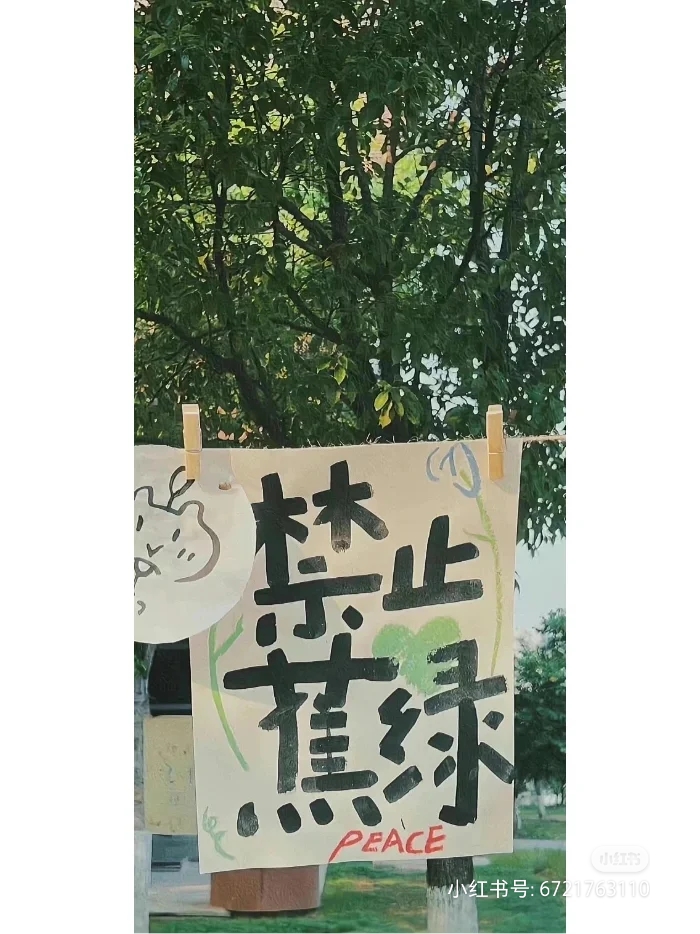 禁止
蕉绿
PEACE
小红书
小红书号: 6721763110